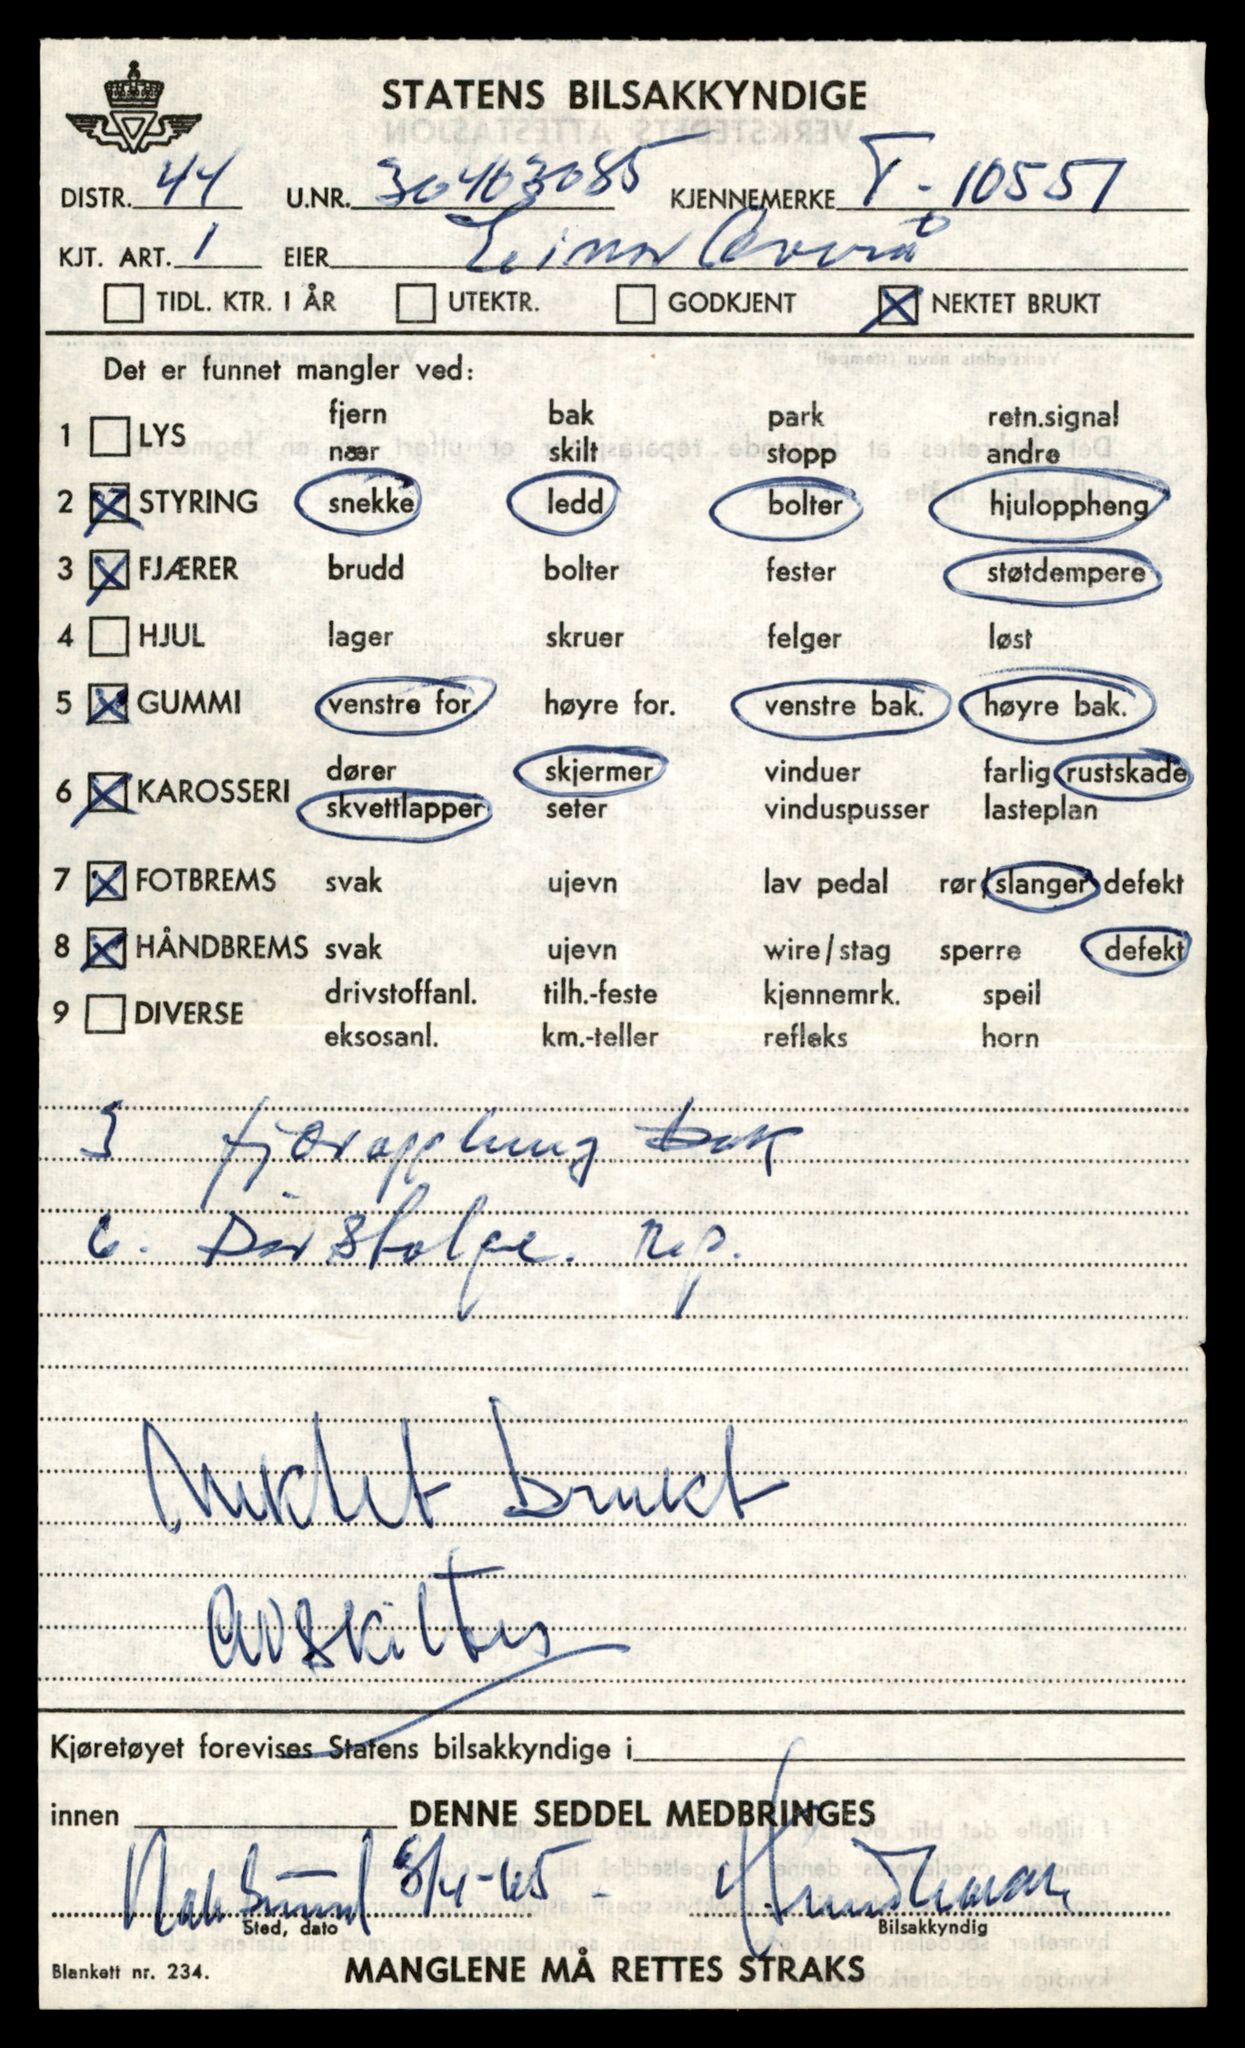 STATENS BILSAKKYNDIGE
DISTR. 44 U.NR. 30403085 KJENNEMERKE T-10551
KJT. ART. 1 EIER Einar Overå
TIDL. KTR. I ÅR UTEKTR. GODKJENT NEKTET BRUKT
Det er funnet mangler ved:
1 LYS fjern bak park retn.signal
nær skilt stopp andre
2 STYRING snekke ledd bolter hjuloppheng
3 FJÆRER brudd bolter fester støtdempere
4 HJUL lager skruer felger løst
5 GUMMI venstre for. høyre for. venstre bak. høyre bak.
6 KAROSSERI dører skjermer vinduer farlig rustskade
skvettlapper seter vinduspusser lasteplan
7 FOTBREMS svak ujevn lav pedal rør/slanger defekt
8 HÅNDBREMS svak ujevn wire/stag sperre defekt
9 DIVERSE drivstoffanl. tilh.-feste kjennemrk. speil
eksosanl. km.-teller refleks horn
3 fjæroppheng bak
6. Dørstolpe. rep.
Nektet brukt
avskiltes
Kjøretøyet forevises Statens bilsakkyndige i
innen DENNE SEDDEL MEDBRINGES
8/4-65 -
Sted, dato Bilsakkyndig
Blankett nr. 234. MANGLENE MÅ RETTES STRAKS